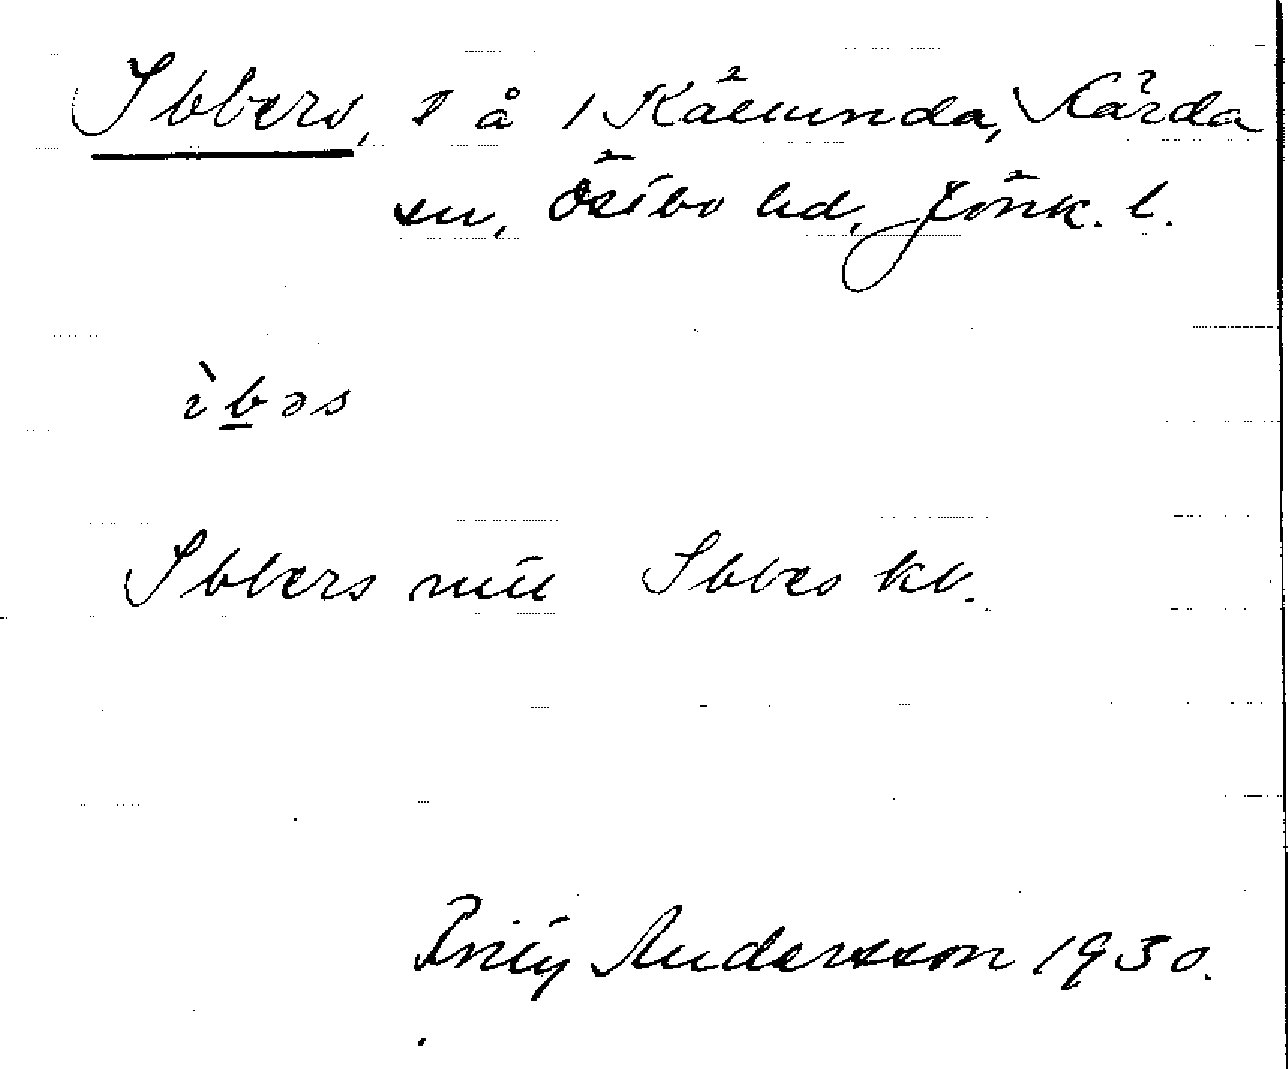 Ibbers, å 1 Källunda, Kärda
sn, Östbo hd, Jönk. l.
ìbəs
Ibbers mtl Ibbes kb.
Andersson 1930.